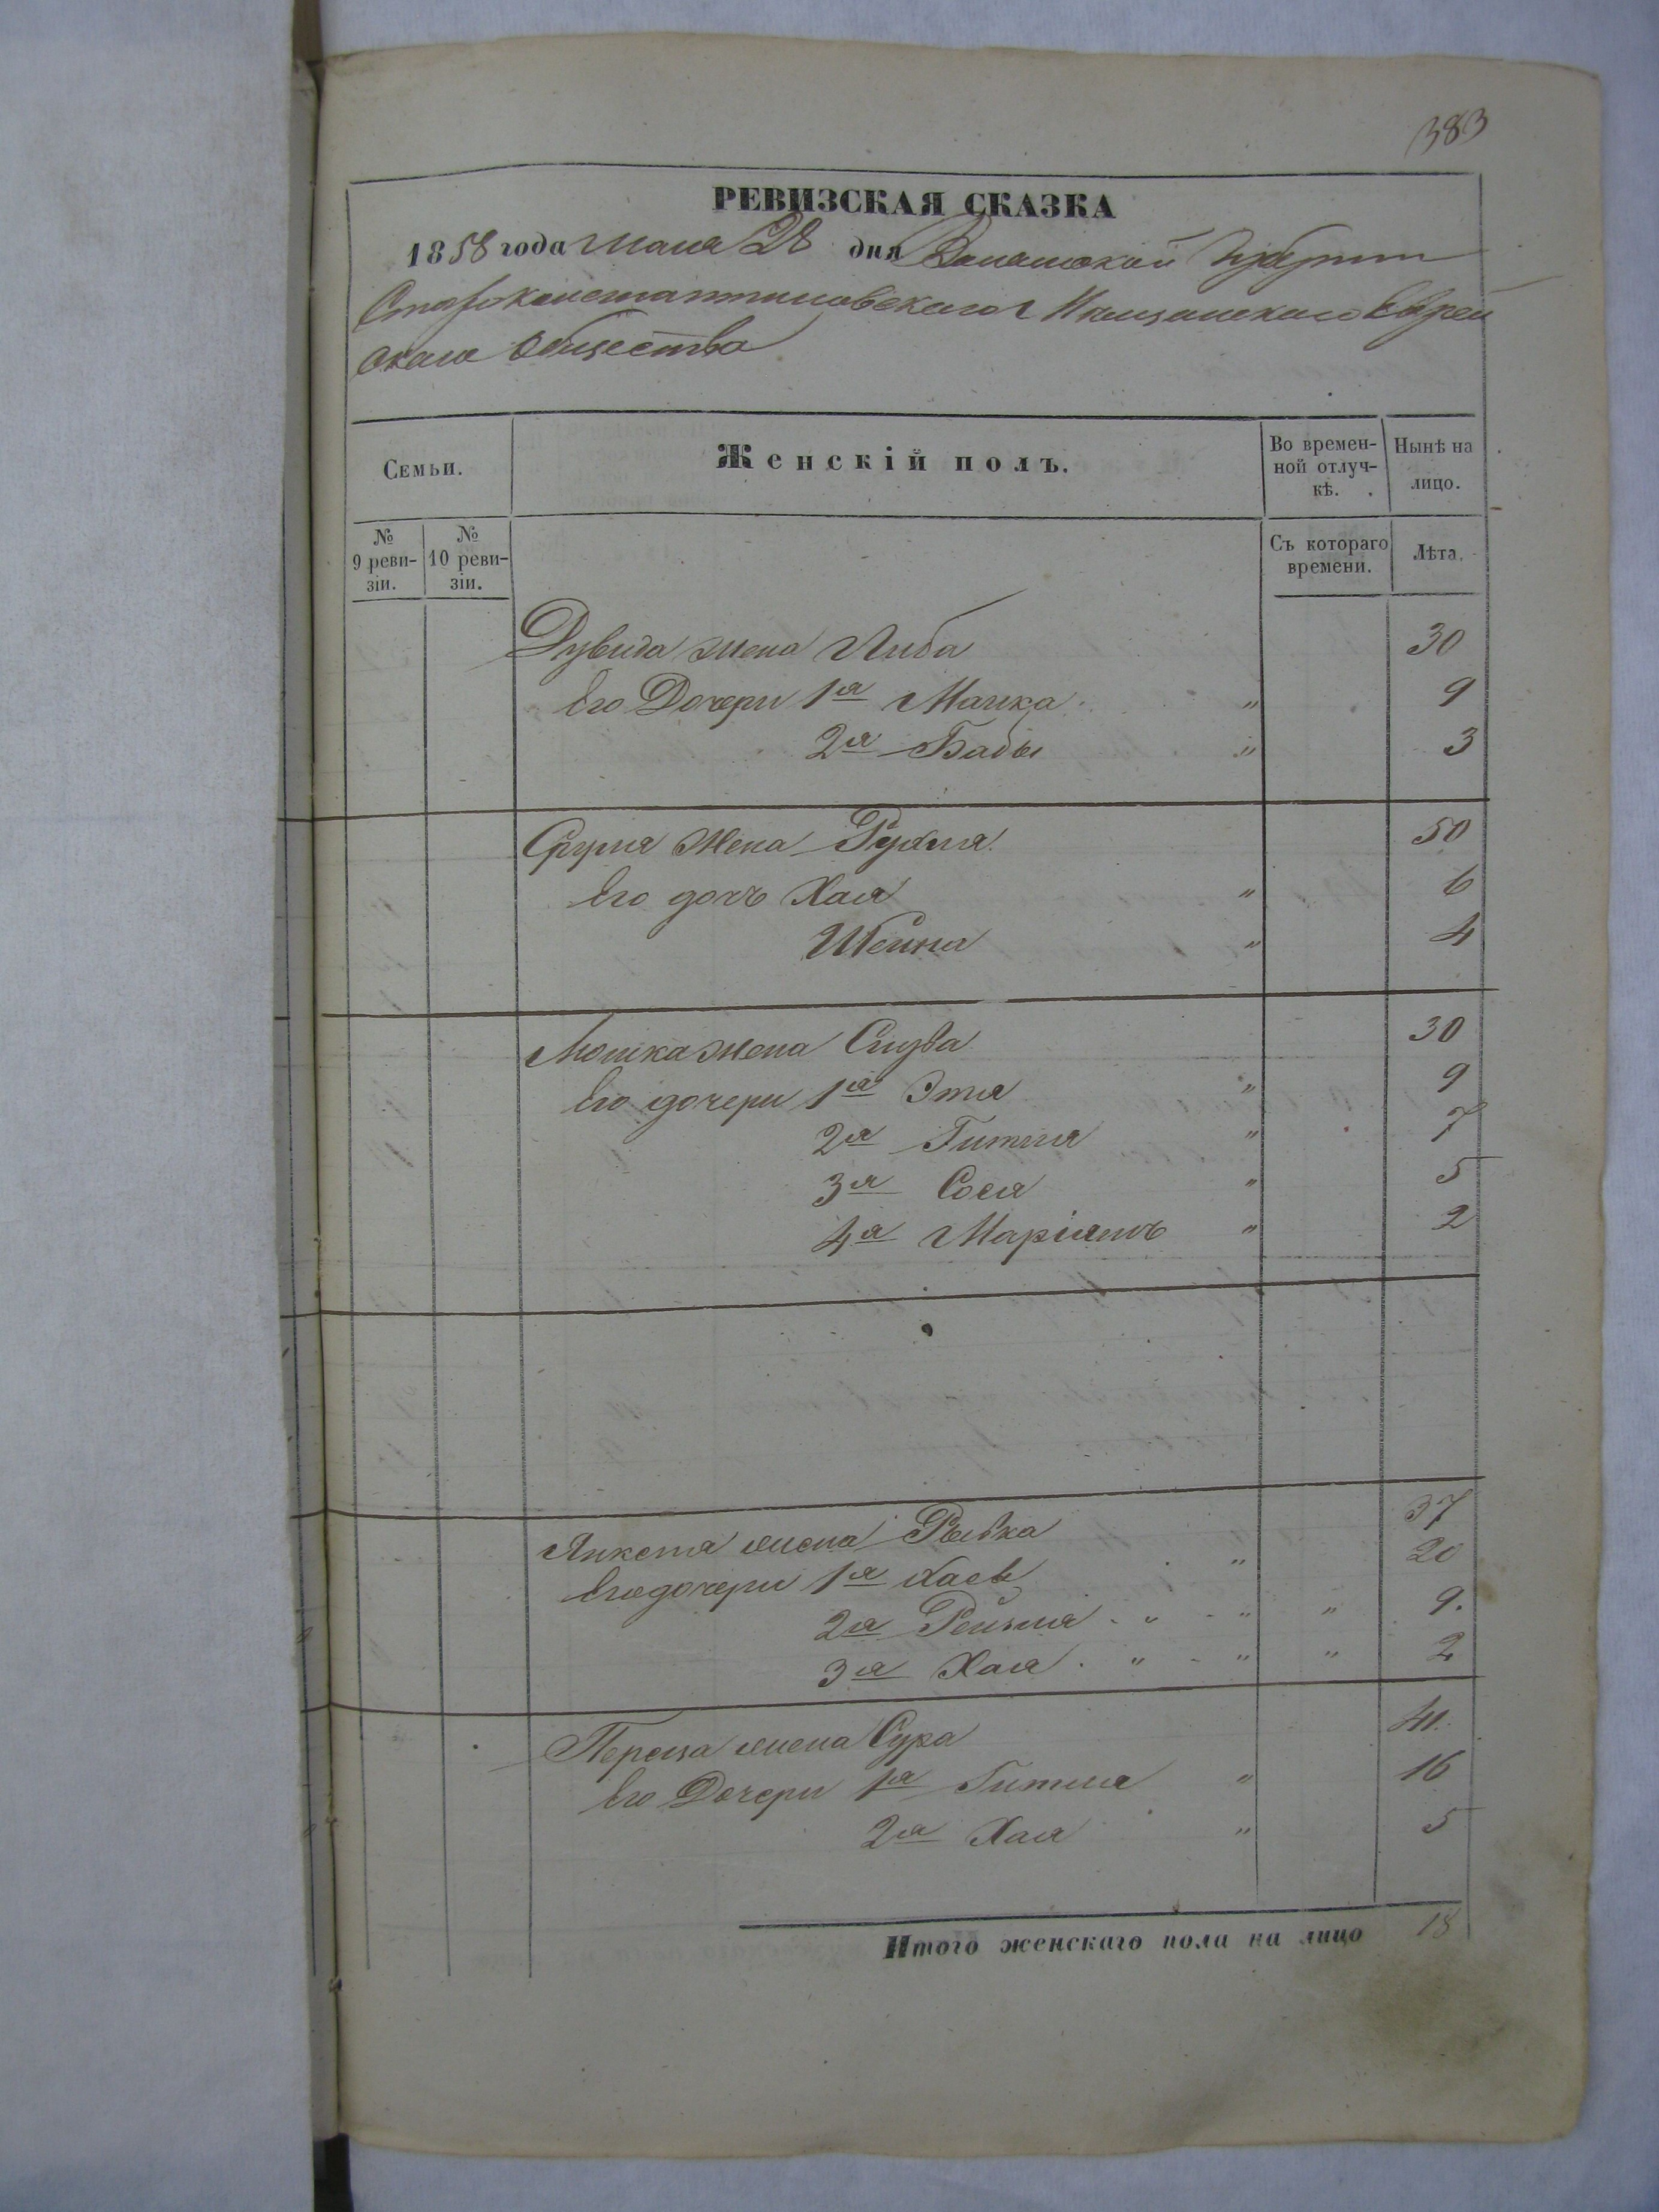 383
РЕВИЗСКАЯ СКАЗКА
1858 года Мая 28 дня Волынской Губернии
Староконстантиновского Мещанскаго Еврей
скаго Общества
Семьи.
Женскій полъ.
Во времен-
ной отлуч-
кѣ.
Нынѣ на
лицо.
№
9 реви-
зіи.
№
10 реви-
зіи.
Съ котораго
времени.
Лѣта.
Дувида жена Либа 30
Его Дочери 1я Малка " 9
2я Бабы " 3
Сруля жена Рухля 50
Его дочь Хая " 6
Шейна " 4
Мошка жена Слува 30
Его дочери 1я Этя " 9
2я Гитля " 7
3я Сося " 5
4я Маріямъ " 2
Янкеля жена Рывка 37
Его дочери 1я Хась " 20
2я Рейзля " " " 9.
3я Хая " " " 2
Переца жена Сура 41.
Его Дочери 1я Гитля " 16
2я Хая " 5
Итого женскаго пола на лицо 18